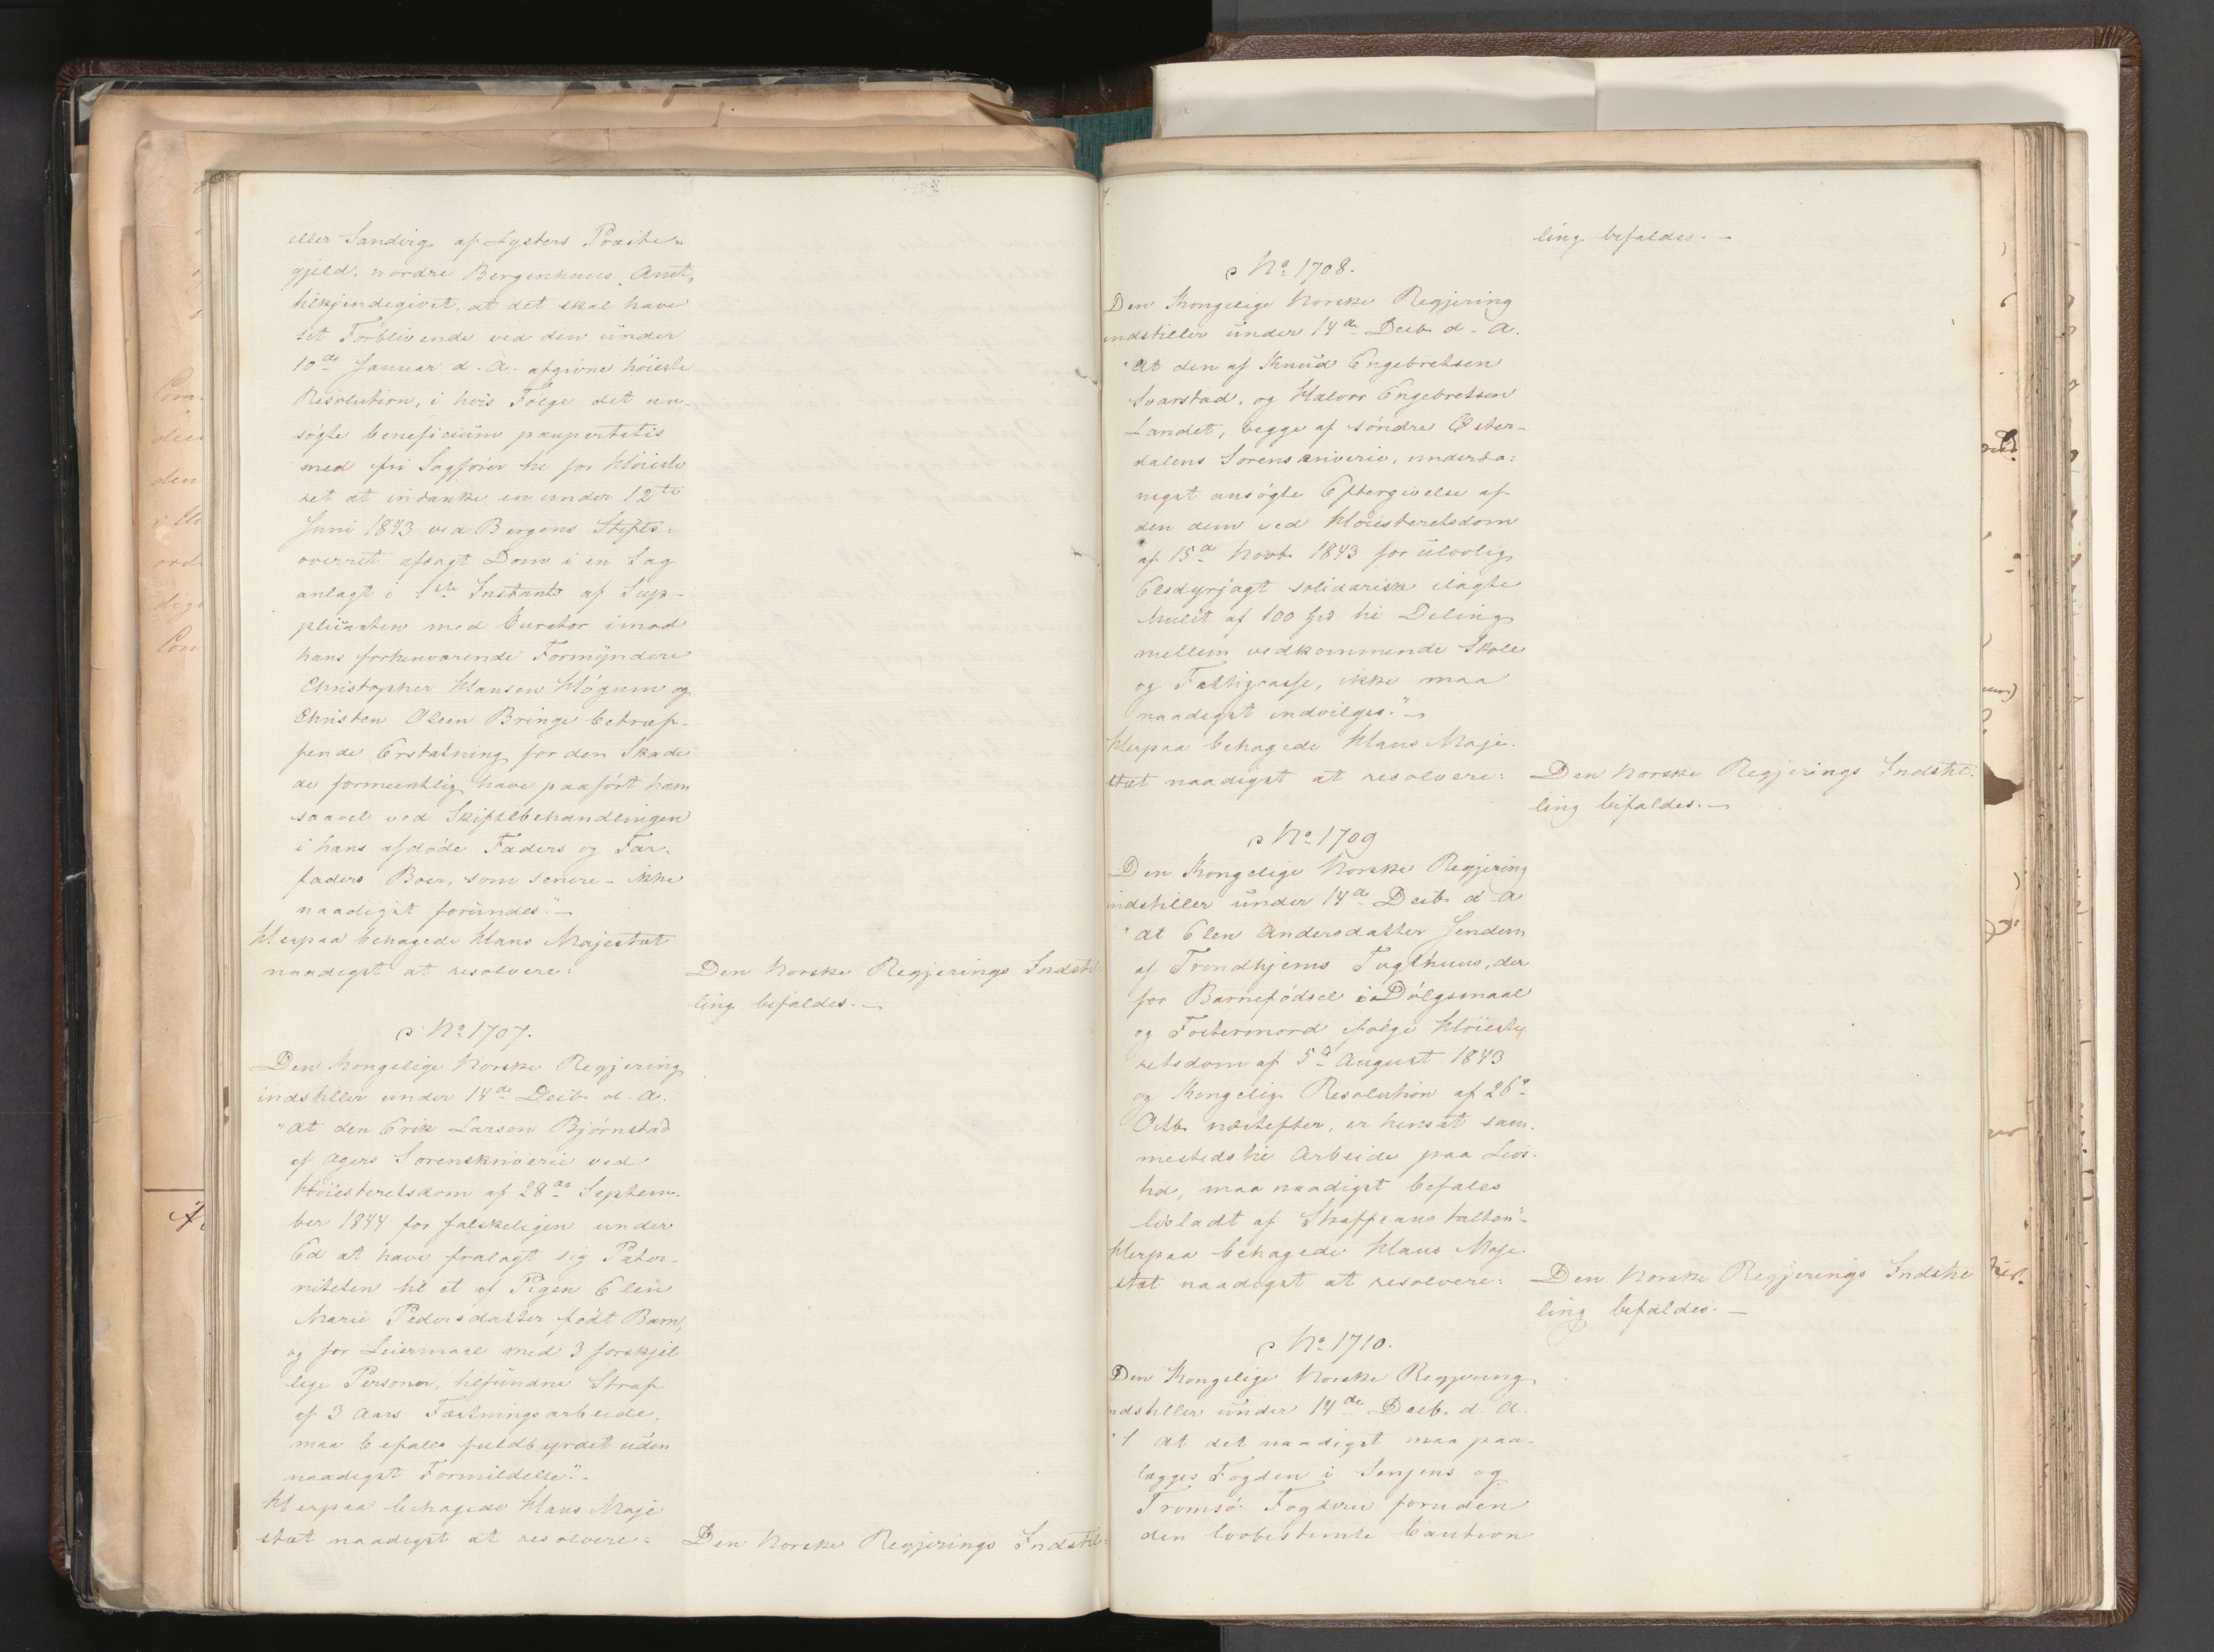 eller Sandvig af Lysters Præste-
gjeld, nordre Bergenhuus Amt,
tilkjendegivet, at det skal have
sit Forblivende ved den under
10de Januar d. A. afgivne höieste
Resolution, i hvis Fölge det an-
sögte beneficium paupertatis
med fri Sagförer til for Höieste
ret at indanke en under 12te
Juni 1843 ved Bergens Stifts-
overret afsagt Dom i en Sag
anlagt i 1ste Instants af Sup-
plicanten med Curator imod
hans forhenværende Formyndere
Christopher Hansen Högum og
Christen Olsen Bringe betræf-
fende Erstatning for den Skade
de formeentlig have paafört ham
saavel ved Skiftebehandlingen
i hans afdöde Faders og Far-
faders Boer, som senere - ikke
naadigst forundes."
Herpaa behagede Hans Majestæt
naadigst at resolvere:
Den Norske Regjerings Indstil-
ling bifaldes.
No 1707.
Den Kongelige Norske Regjering
indstiller under 14de Decb. d. A.
"At den Erik Larsen Björnstad
af Agers Sorenskriverie ved
Höiesteretsdom af 28de Septem-
ber 1844 for falskeligen under
Ed at have fralagt sig Pater-
niteten til et af Pigen Elen
Marie Pedersdatter födt Barn,
og for Leiermaal med 3 forskjel
lige Personer, tilfundne Straf
af 3 Aars Fæstningsarbeide,
maa befales fuldbyrdet uden
naadigst Formildelse."
Herpaa behagede Hans Maje
stæt naadigst at resolvere:
Den Norske Regjerings Indstil-
ling bifaldes.
No 1708.
Den Kongelige Norske Regjering
indstiller under 14de Decb. d. A.
"At den af Knud Engebretsen
Svarstad, og Halvor Engebretsen
Landet, begge af söndre Öster-
dalens Sorenskriverie, underda-
nigst ansögte Eftergivelse af
den dem ved Höiesteretsdom
af 15de Novb. 1843 for ulovlig
Elsdyrjagt solidarisk ilagte
Mulct af 100 Spd til Deling
mellem vedkommende Skole
og Fattigcasse, ikke maa
naadigst indvilges."
Herpaa behagede Hans Maje-
stæt naadigst at resolvere:
Den Norske Regjerings Indstil-
ling bifaldes.
No 1709
Den Kongelige Norske Regjering
indstiller under 14de Decb. d. A
"At Elen Andersdatter Jendem
af Trondhjems Tugthuus, der
for Barnefödsel i Dölgsmaal
og Fostermord ifölge Höieste
retsdom af 5te August 1843
og Kongelig Resolution af 26de
Octb. næstefter, er hensat sam-
mesteds til Arbeide paa Livs-
tid, maa naadigst befales
lösladt af Straffeanstalten"
Herpaa behagede Hans Maje-
stæt naadigst at resolvere:
Den Norske Regjerings Indstil
ling bifaldes.
No 1710.
Den Kongelige Norske Regjering
indstiller under 14de Decb. d. A.
"1 At det naadigst maa paa-
lægges Fogden i Senjens og
Tromsö Fogderie foruden
den lovbestemte Caution